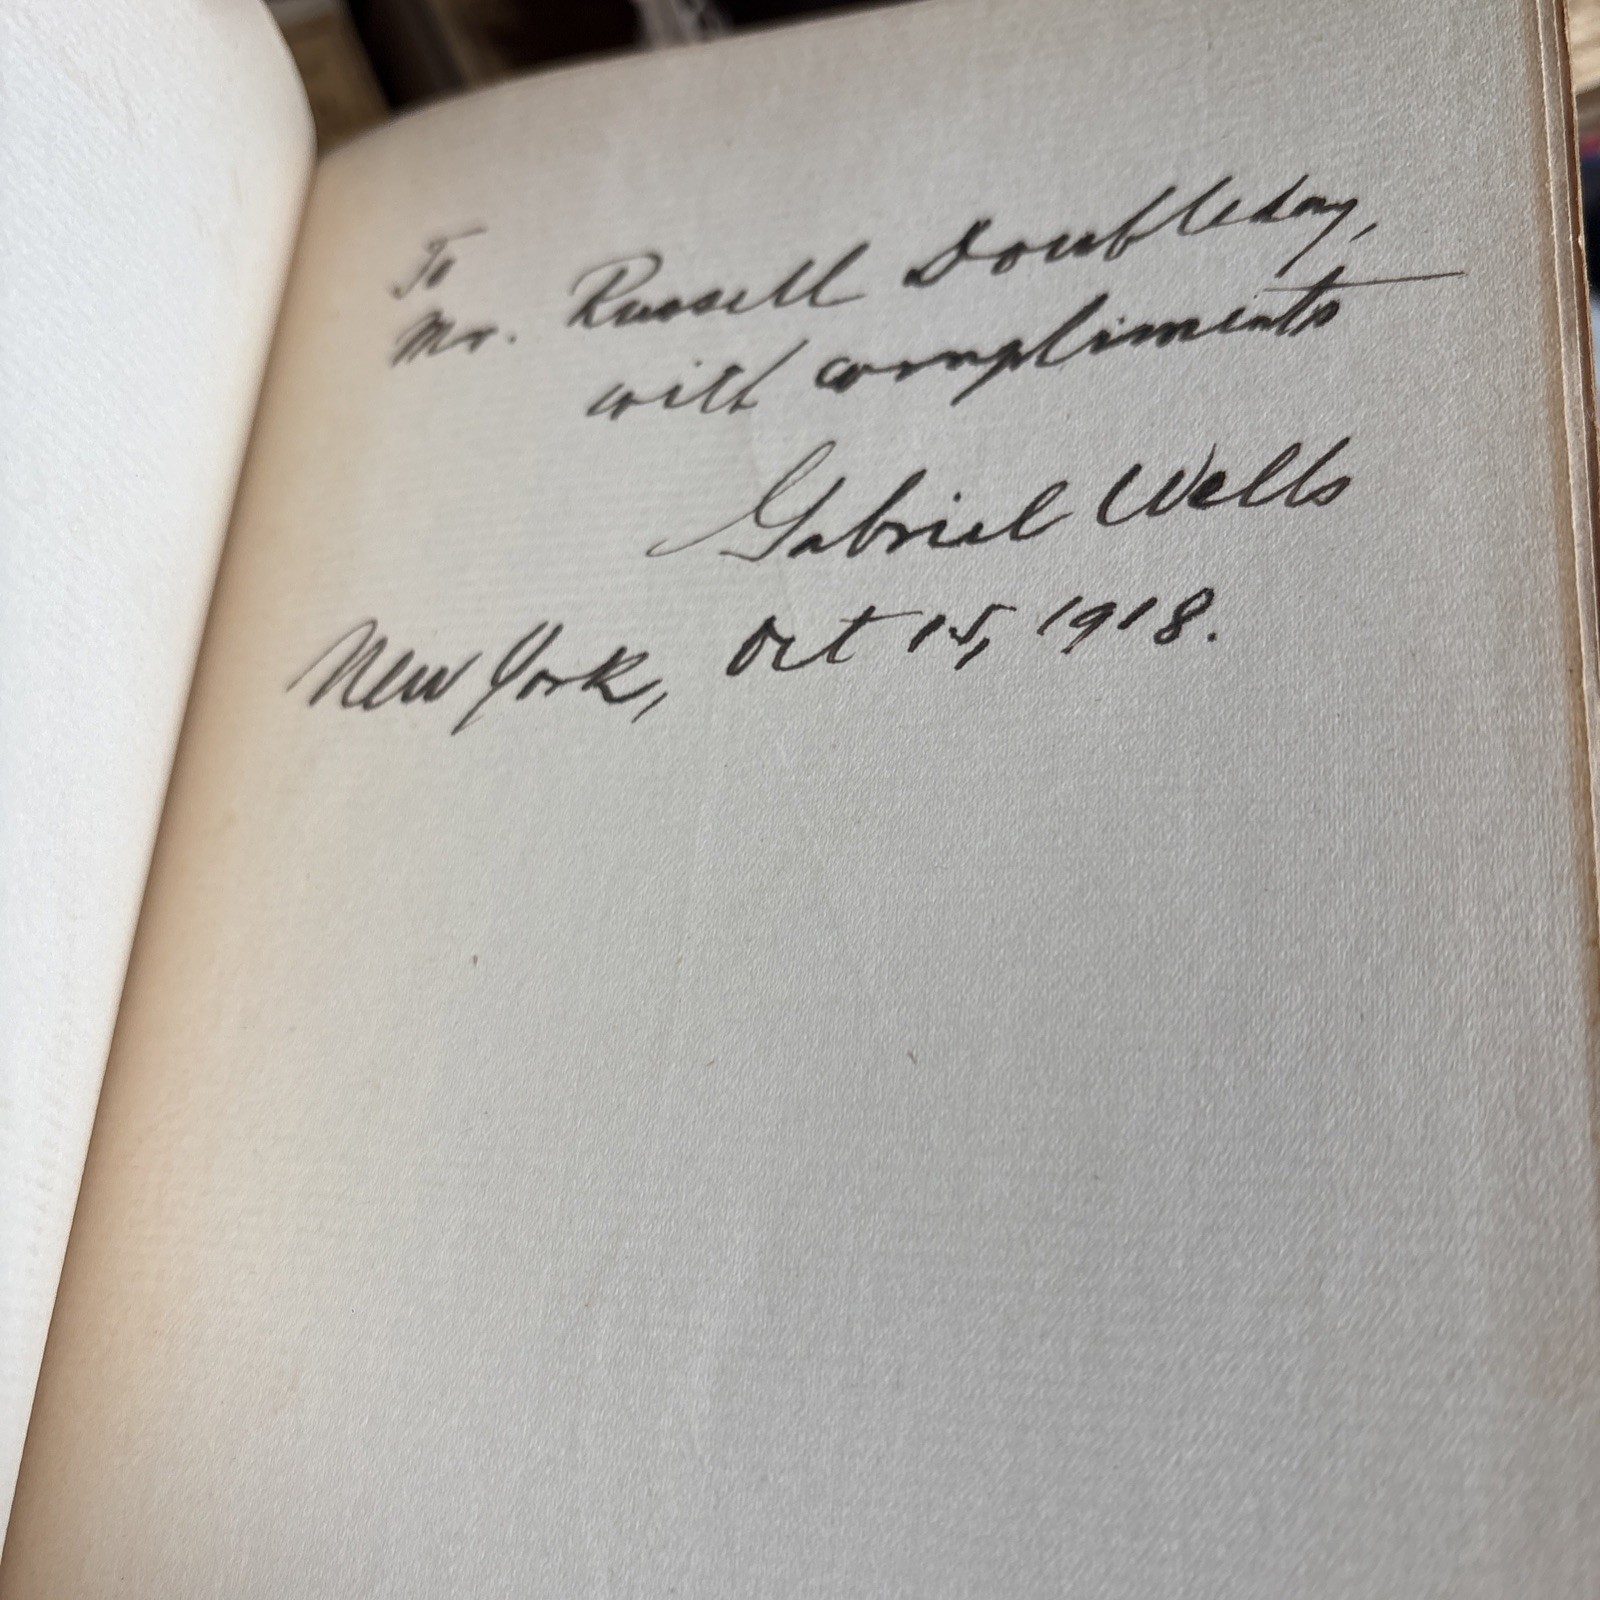 To
Mr. Russell Doubleday,
with compliments
Gabriel Wells
New York, Oct 15, 1918.